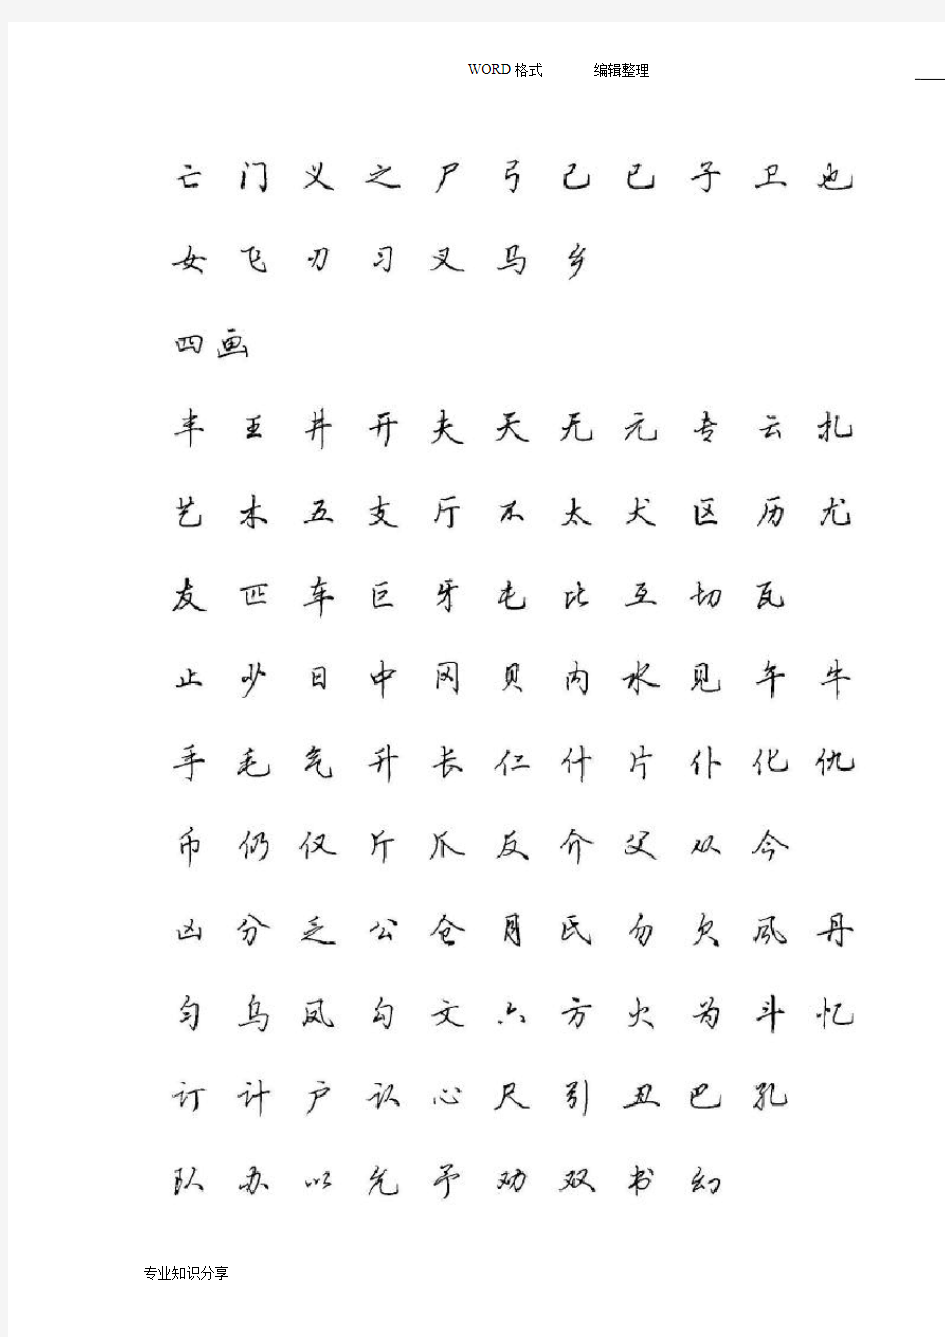 WORD格式 编辑整理
亡 门 义 之 尸 弓 己 已 子 卫 也
女 飞 刃 习 叉 马 乡
四画
丰 王 井 开 夫 天 无 元 专 云 扎
艺 木 五 支 厅 不 太 犬 区 历 尤
友 匹 车 巨 牙 屯 比 互 切 瓦
止 少 日 中 冈 贝 内 水 见 午 牛
手 毛 气 升 长 仁 什 片 仆 化 仇
币 仍 仅 斤 爪 反 介 父 从 今
凶 分 乏 公 仓 月 氏 勿 欠 风 丹
匀 乌 凤 勾 文 六 方 火 为 斗 忆
订 计 户 认 心 尺 引 丑 巴 孔
队 办 以 允 予 劝 双 书 幻
专业知识分享